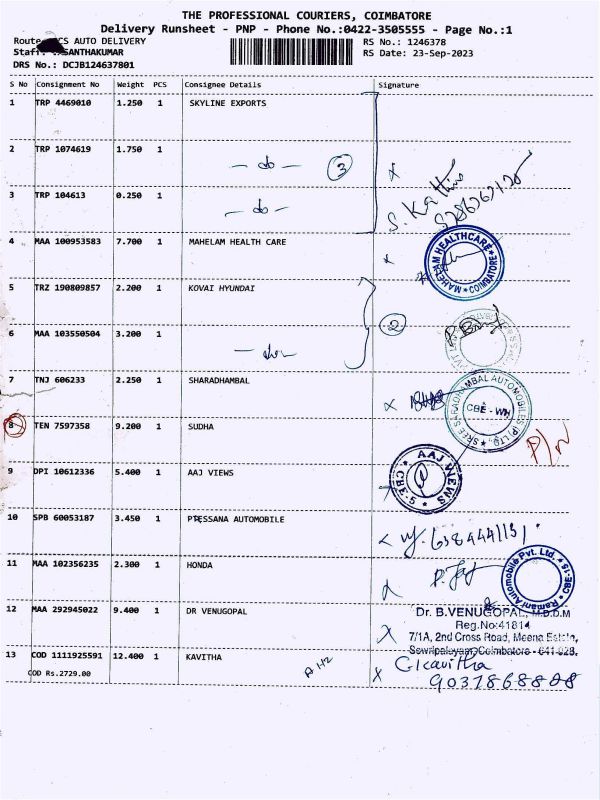 THE PROFESSIONAL COURIERS, COIMBATORE
Delivery Runsheet - PNP - Phone No.:0422-3505555 - Page No.:1
Route: CS AUTO DELIVERY
RS No.: 1246378
Staff: SANTHAKUMAR
RS Date: 23-Sep-2023
DRS No.: DCJB124637801
S No Consignment No Weight PCS Consignee Details Signature
1 TRP 4469010 1.250 1 SKYLINE EXPORTS
2 TRP 1074619 1.750 1
- do - 3 x
3 TRP 104613 0.250 1
- do - S. Kathir
4 MAA 100953583 7.700 1 MAHELAM HEALTH CARE x
MAHELAM HEALTHCARE * COIMBATORE *
5 TRZ 190809857 2.200 1 KOVAI HYUNDAI
2
6 MAA 103550504 3.200 1
7 TNJ 606233 2.250 1 SHARADHAMBAL x
SREE SARADHAMBAL AUTOMOBILES (P) LTD. CBE - WH
8 TEN 7597358 9.200 1 SUDHA
P/N
9 DPI 10612336 5.400 1 AAJ VIEWS
AAJ VIEWS * CBE-5 *
10 SPB 60053187 3.450 1 PTESSANA AUTOMOBILE
11 MAA 102356235 2.300 1 HONDA
Ramani Automobile Pvt. Ltd. * CBE-15
12 MAA 292945022 9.400 1 DR VENUGOPAL x
Dr. B.VENUGOPAL, M.D.D.M
Reg.No:41814
7/1A, 2nd Cross Road, Meena Estate,
Sowripalayam, Coimbatore - 641 028.
13 COD 1111925591 12.400 1 KAVITHA x
G Kavitha
COD Rs.2729.00